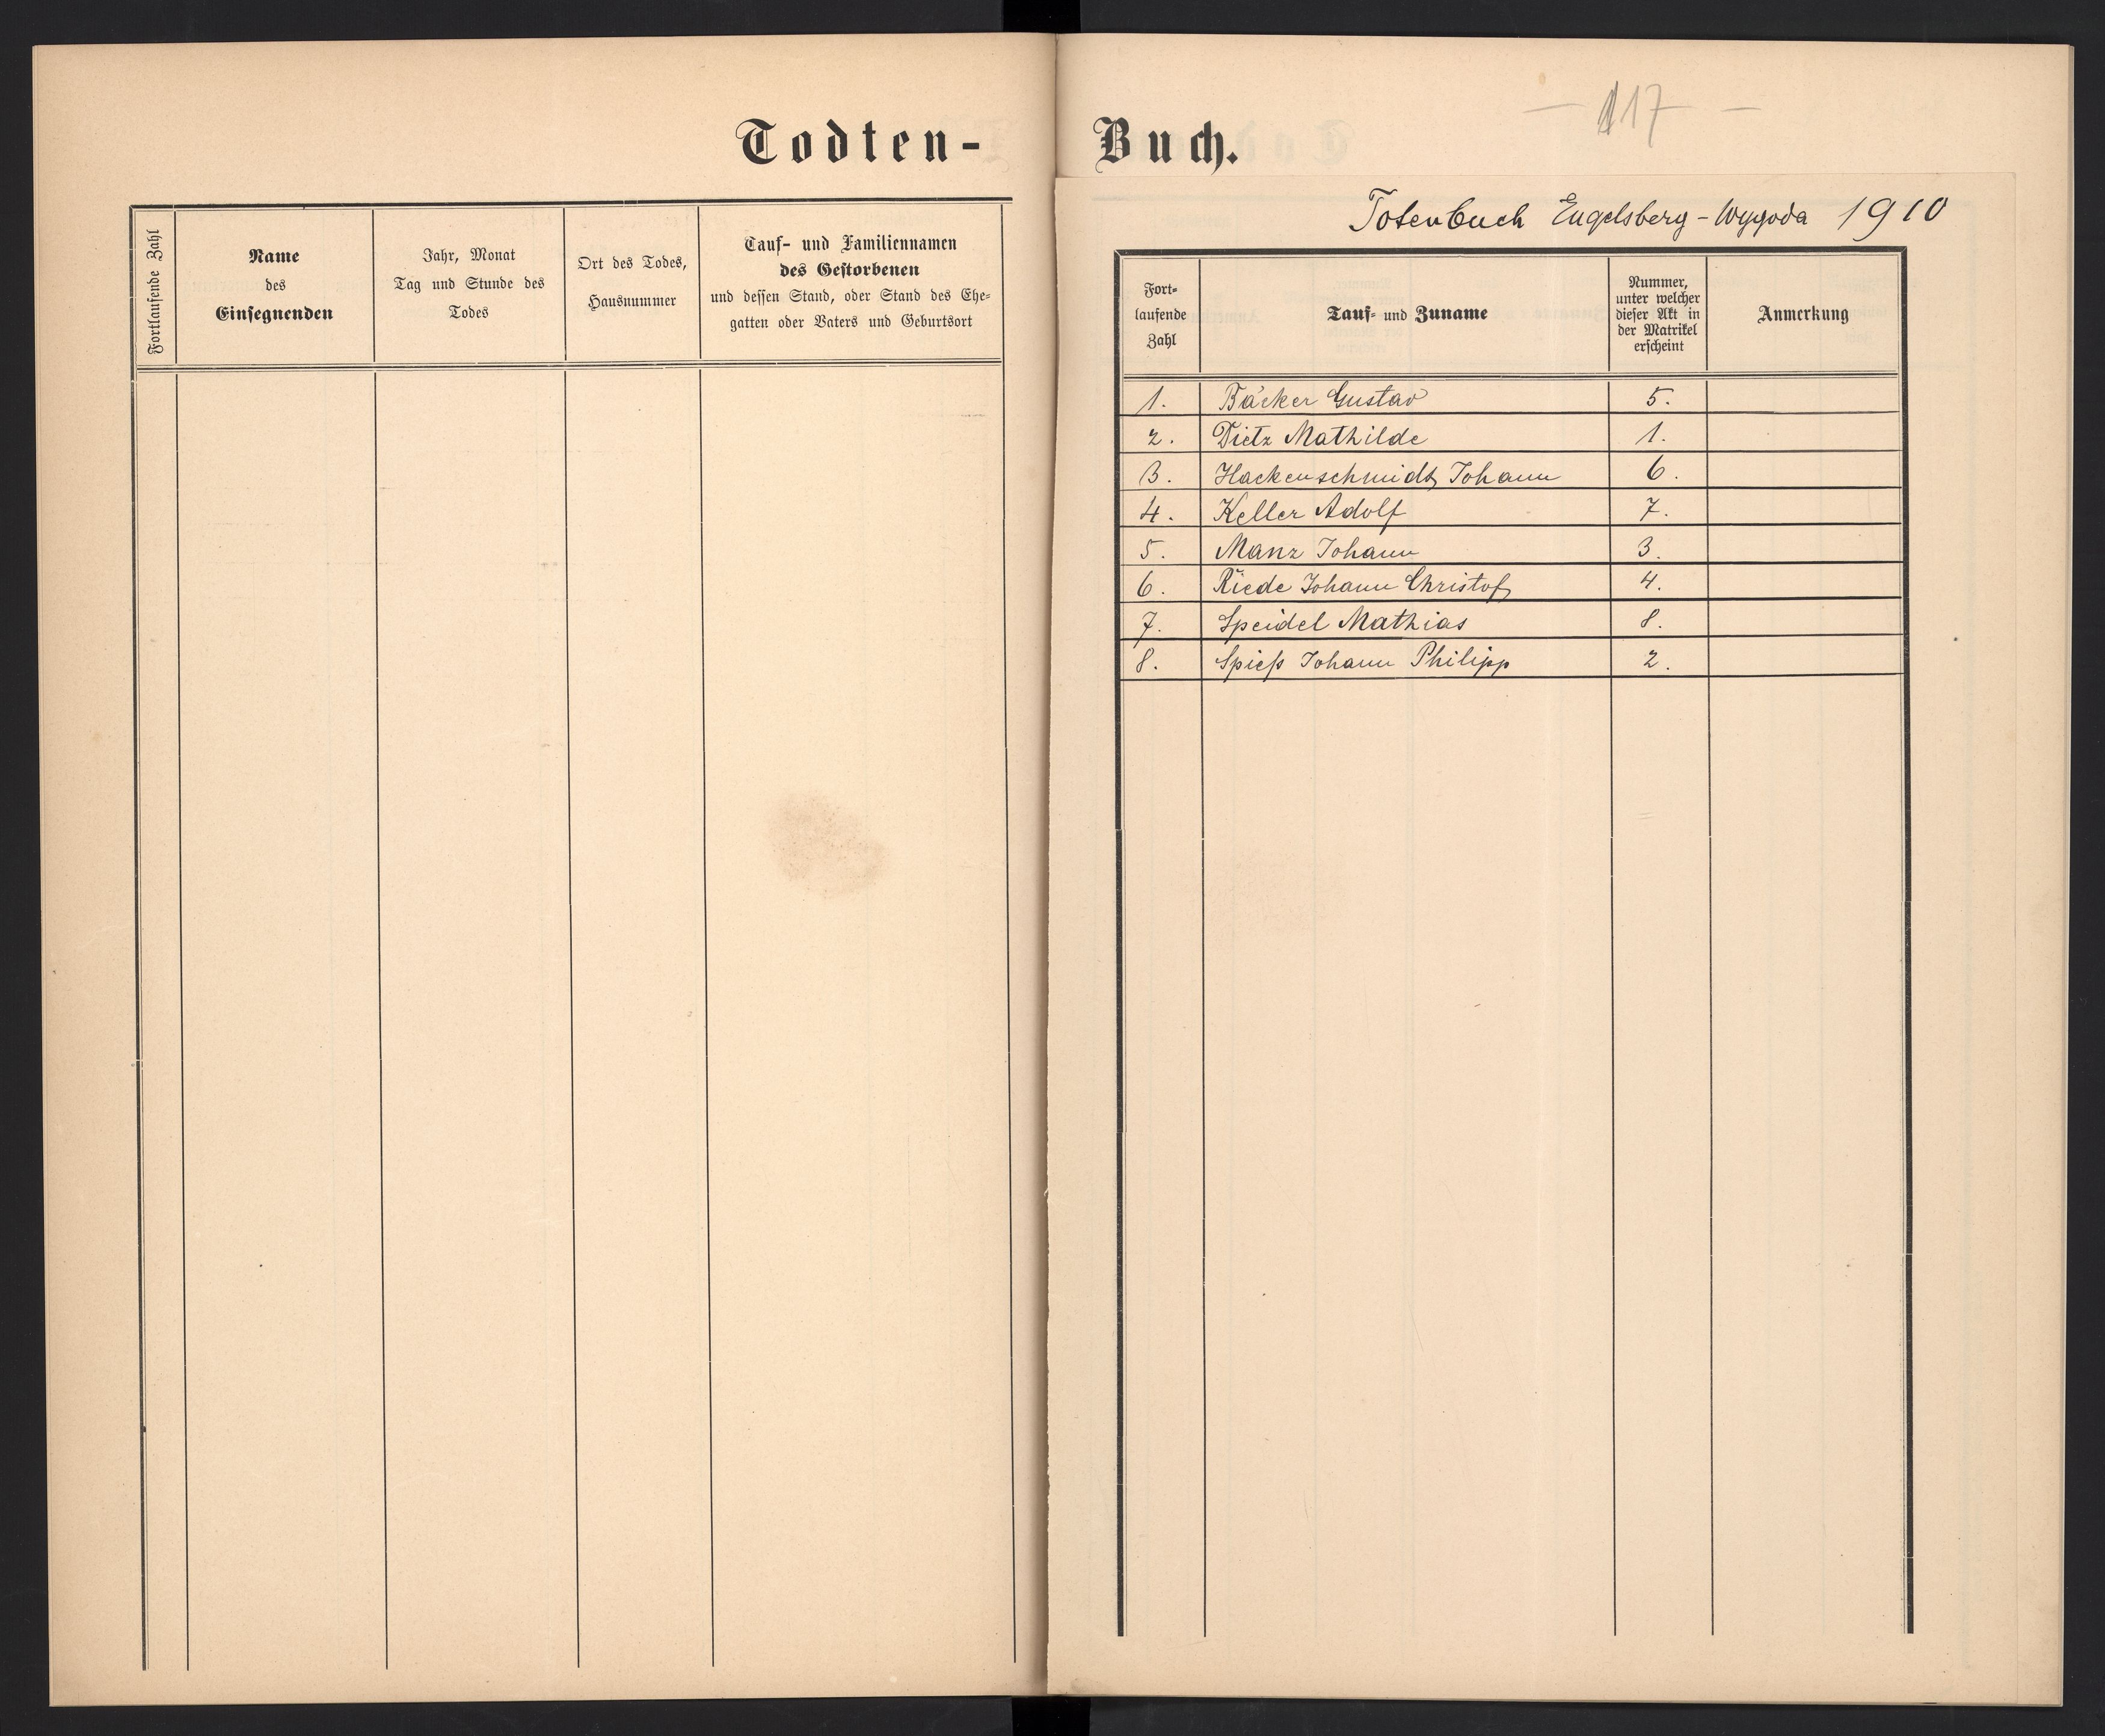 Todten-
Fortlaufende Zahl
Name
des
Einsegnenden
Jahr, Monat
Tag und Stunde des
Todes
Ort des Todes,
Hausnummer
Tauf- und Familiennamen
des Gestorbenen
und dessen Stand, oder Stand des Ehe-
gatten oder Vaters und Geburtsort
Buch.
— 117 —
Totenbuch Engelsberg-Wygoda 1910
Fort-
laufende
Zahl
Tauf- und Zuname
Nummer,
unter welcher
dieser Akt in
der Matrikel
erscheint
Anmerkung
1. Bäcker Gustav 5.
2. Dietz Mathilde 1.
3. Hackenschmidt Johann 6.
4. Keller Adolf 7.
5. Manz Johann 3.
6. Riede Johann Christof 4.
7. Speidel Mathias 8.
8. Spieß Johann Philipp 2.